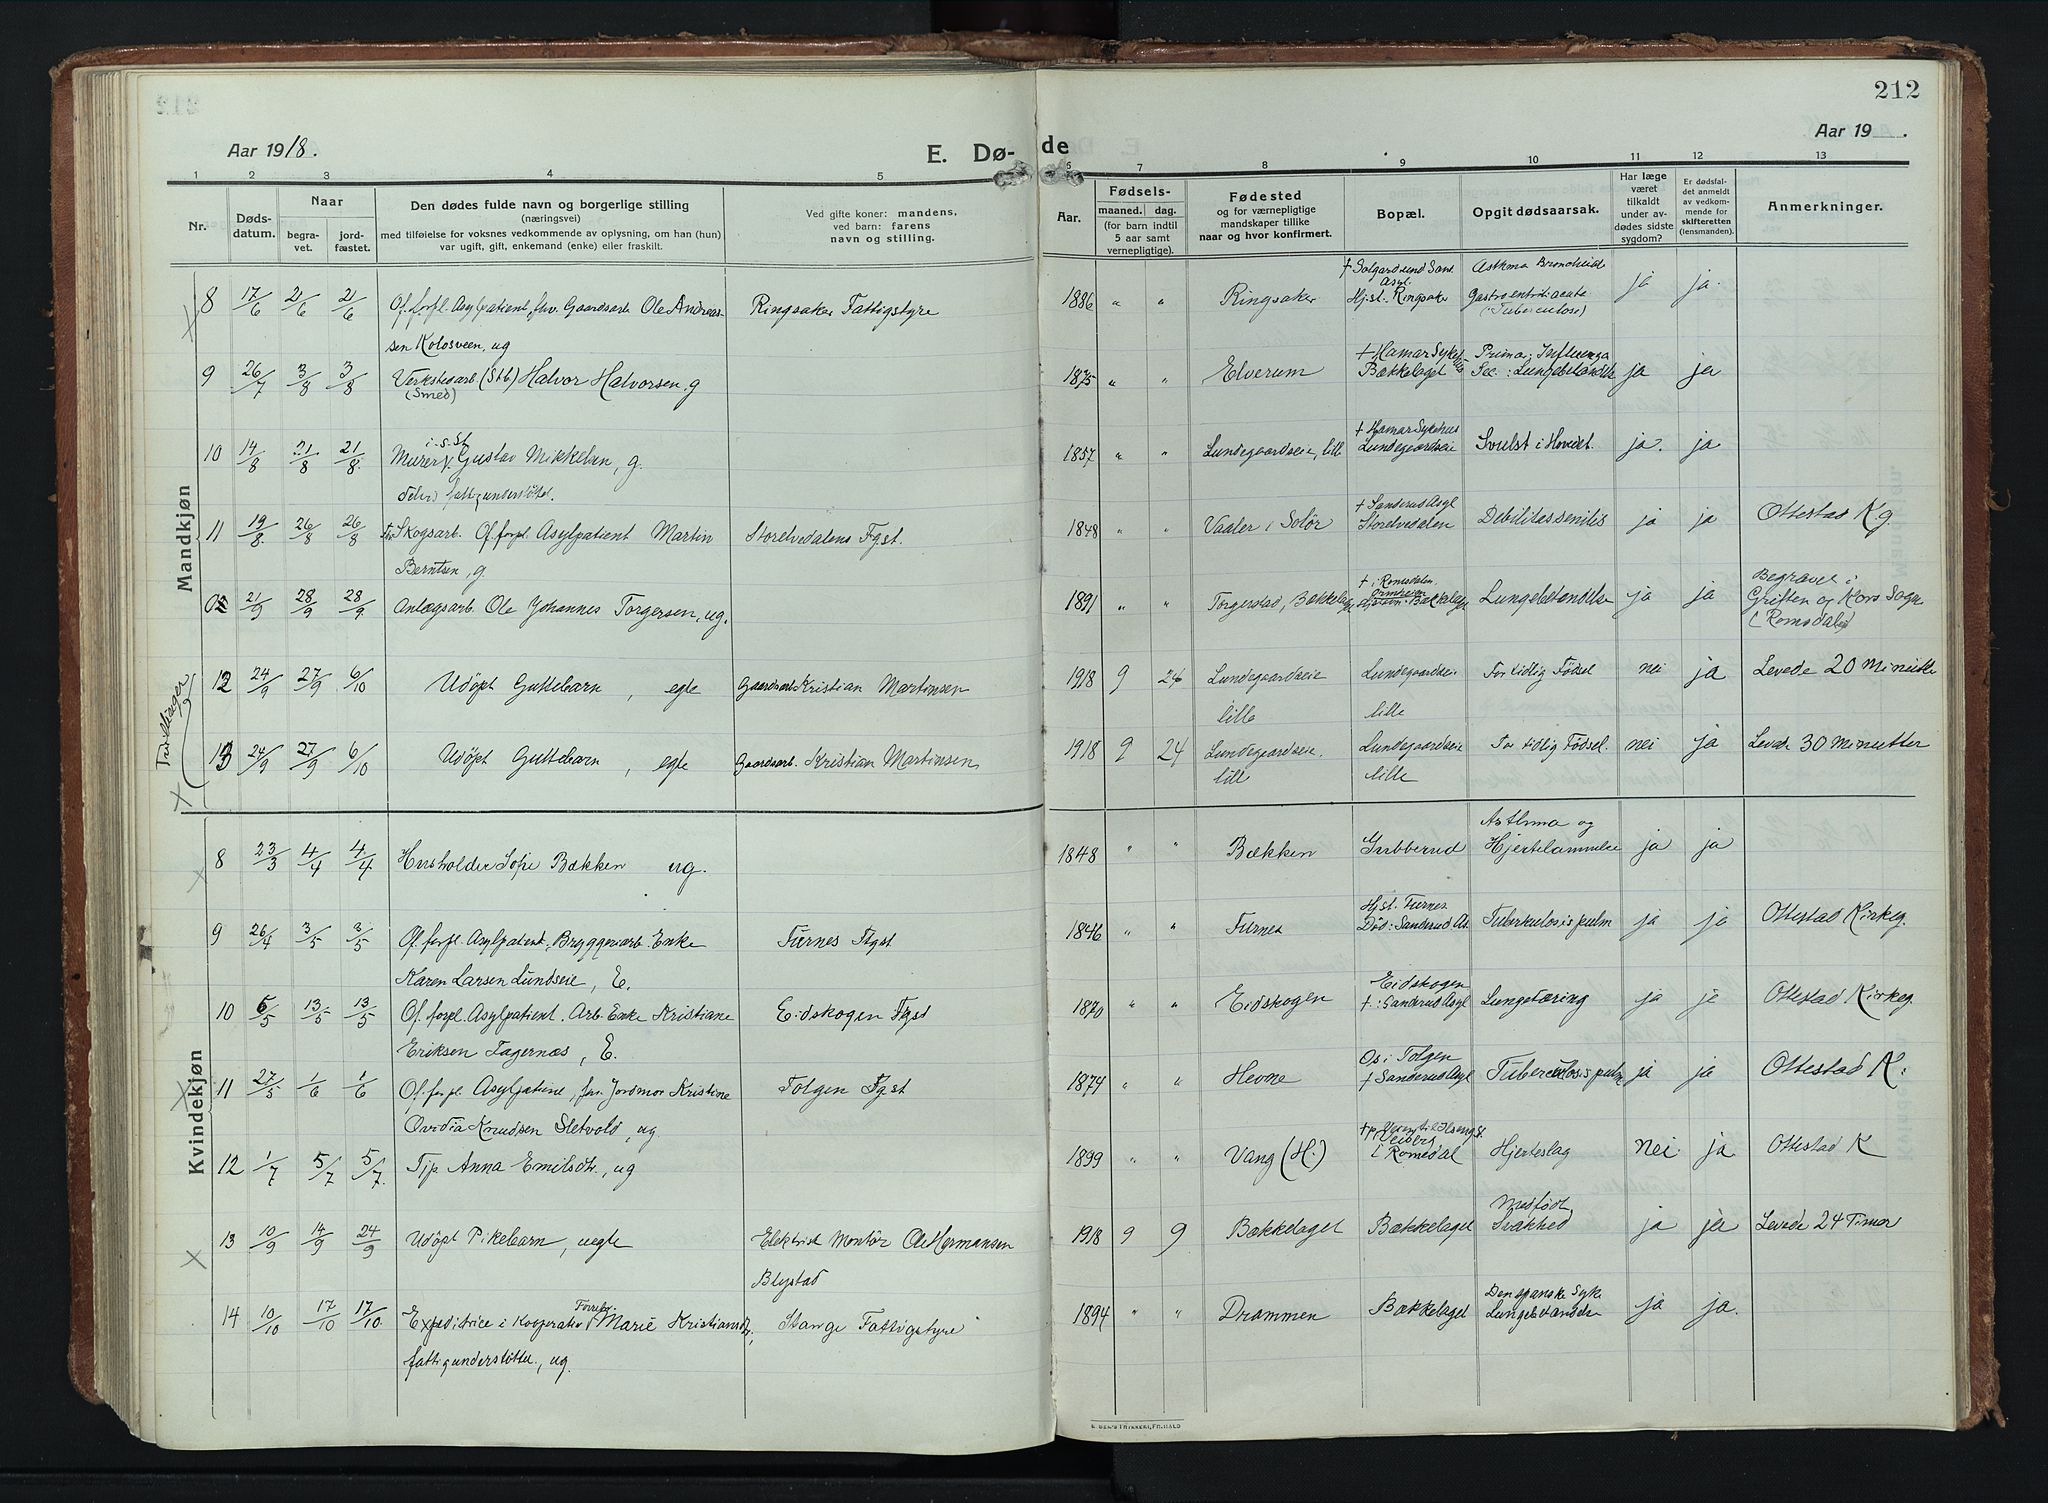 212
Aar 1918.
E. Dø-
de
Aar 19
1 2 3 4 5 6 7 8 9 10 11 12 13
Nr.
Døds-
datum.
Naar
begra-
vet.
jord-
fæstet.
Den dødes fulde navn og borgerlige stilling
(næringsvei)
med tilføielse for voksnes vedkommende av oplysning, om han (hun)
var ugift, gift, enkemand (enke) eller fraskilt.
Ved gifte koner: mandens,
ved barn: farens
navn og stilling.
Aar.
Fødsels-
maaned. dag.
(for barn indtil
5 aar samt
vernepligtige).
Fødested
og for værnepligtige
mandskaper tillike
naar og hvor konfirmert.
Bopæl.
Opgit dødsaarsak.
Har læge
været
tilkaldt
under av-
dødes sidste
sygdom?
Er dødsfal-
det anmeldt
av vedkom-
mende for
skifteretten
(lensmanden).
Anmerkninger.
Mandkjøn
8 17/6 2/6 21/6 Of. forpl. Asylpatient, fhv. Gaardsarb Ole Andreas-
sen Kolosveen, ug
Ringsaker Fattigstyre
1886 " " Ringsaker
Hjst. Ringsaker
Asthma Bronchiale
Gastroentrit acuta
(Tuberculose)
ja ja.
9 26/7 3/8 3/8 Verkstedarb (Stb) Halvor Halvorsen, g
(Smed)
1875 " " Elverum
+ Hamar Syke
Bækkelaget
Prima: Influenza
Sec: Lungebetændelse
ja ja
10 14/8 21/8 21/8 i.s.st
Murer Gustav Mikkelsen, g.
delvis fattigunderstøttet.
1857 " " Lundegaardseie, lille
+ Hamar Sykehus
Lundegaardseie
Svulst i Hovedet.
ja. ja
11 19/8 26/8 26/8 Skogsarb. Of. forpl. Asylpatient Martin
Berntsen, g.
Storelvedalens Fgst.
1848 " " Vaaler i Solør
+ Sanderud Asyl
Storelvedalen
Debilitas senilis
ja ja
Ottestad Kg.
21/9 28/9 28/9 Anlægsarb. Ole Johannes Torgersen, ug.
1891 " " Torgerstad, Bækkelaget
+ i Romsdalen.
Bækkelaget
Lungebetændelse
ja ja
Begravet i
Griften og Kors Sogn
(Romsdalen)
Tvillinger
12 24/9 27/9 6/10 Udøpt Guttebarn, egte
Gaardsarb Kristian Martinsen
1918 9 24 Lundegaardseie
lille
Lundegaardseie
lille
For tidlig Fødsel
nei ja
Levede 20 Minutter
13 24/9 27/9 6/10 Udøpt Guttebarn, egte
Gaardsarb. Kristian Martinsen
1918 9 24 Lundegaardseie.
lill
Lundegaardseie
lille
For tidlig Fødsel
nei ja
Levede 30 Minutter
Kvindekjøn
8 23/3 4/4 4/4 Husholder Sofie Bækken ug.
1848 " " Bækken
Gubberud
Asthma og
Hjertelammelse
ja ja
9 26/4 3/5 3/5 Of. forpl. Asylpatient. Bryggeriarb. Enke
Karen Larsen Lundseie, E.
Furnes Fgst
1846 " " Furnes
Hjst. Furnes
Død: Sanderud As.
Tuberkulosis pulm
ja ja
Ottestad Kirkeg.
10 6/5 13/5 13/5 Of. forpl. Asylpatient. Arb. Enke Kristiane
Eriksen Fagernæs, E.
Eidskogen Fgst
1870 " " Eidskogen
Eidskogen
+: Sanderud Asyl
Lungetæring
ja ja
Ottestad Kirkeg
11 27/5 1/6 1/6 Of. forpl. Asylpatient, fhv. Jordmor Kristine
Ovidia Knudsen Sletvold, ug.
Tolgen Fgst
1874 " " Hevne
Os i Tolgen
+ Sanderud Asyl
Tuberculosis pulm
ja ja
Ottestad K.
12 1/7 5/7 5/7. Tjp Anna Emilsdtr., ug
1899 " " Vang (H.)
i Romedal
Hjerteslag
nei ja
Ottestad K
13 10/9 14/9 24/9 Udøpt Pikebarn, uegte
Elektrisk Montør Ole Hermansen
Blystad
1918 9 9 Bækkelaget
Bækkelaget
Medfødt
Svakhed
ja ja
Levede 24 Timer
14 10/10 17/10 17/10 Expeditrice i Kooperativ Forretn. Marie Kristiansdtr,
fattigunderstøttet, ug.
Stange Fattigstyre
1894 " " Drammen
Bækkelaget
Den spanske Syke
Lungebetændelse
ja ja.